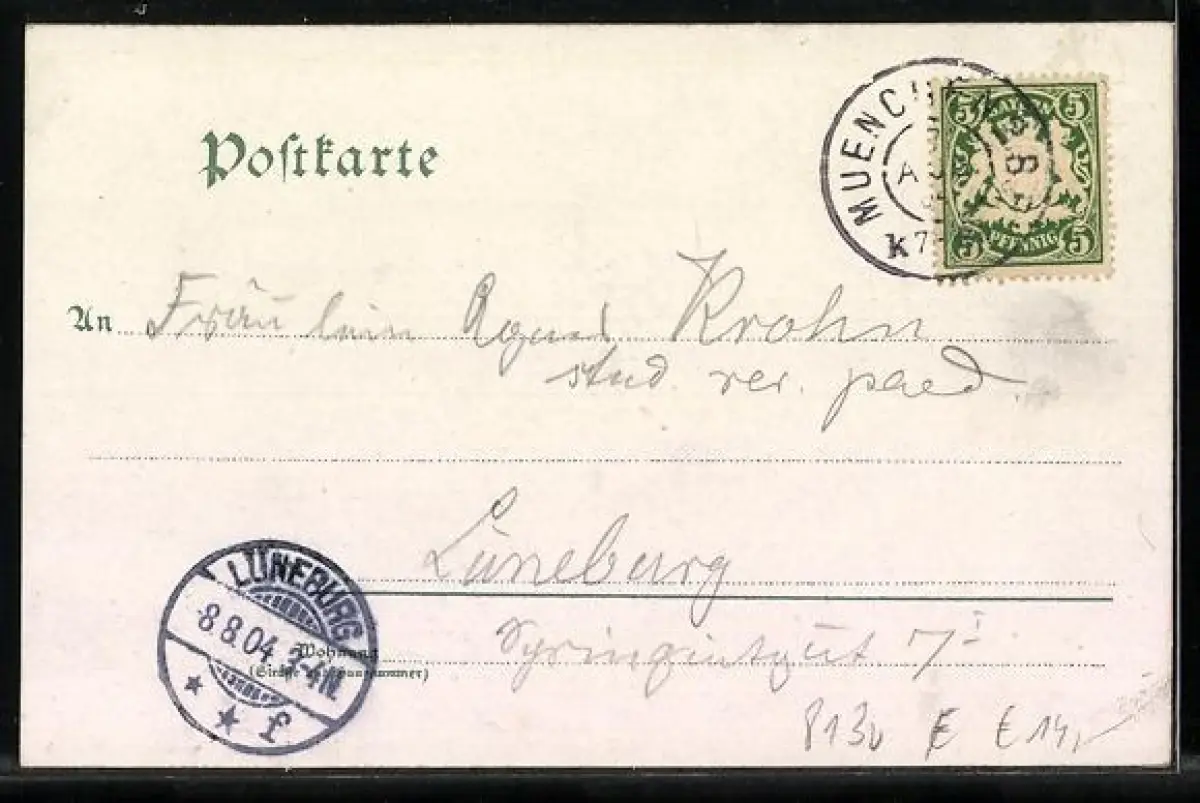 Postkarte
MUENCHEN
K 7
BAYERN
5 5
PFENNIG
5 5
An Fräulein Agnes Krohn
stud. rer. paed.
Lüneburg
LÜNEBURG
8.8.04 3-4N.
* * f
Wohnung
(Straße und Hausnummer)
7 I
8130 € € 14,-